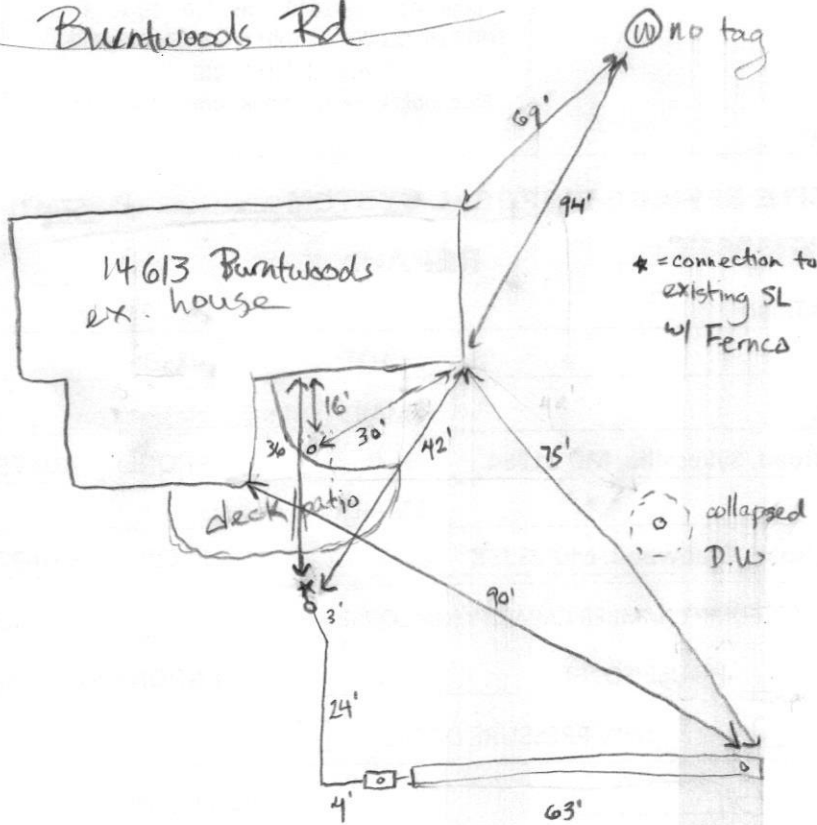 Burntwoods Rd
W no tag
69'
94'
14613 Burntwoods
ex. house
* = connection to
existing SL
w/ Fernco
16'
36
30'
42'
75'
deck patio
collapsed
D.W
90'
3'
24'
4'
63'